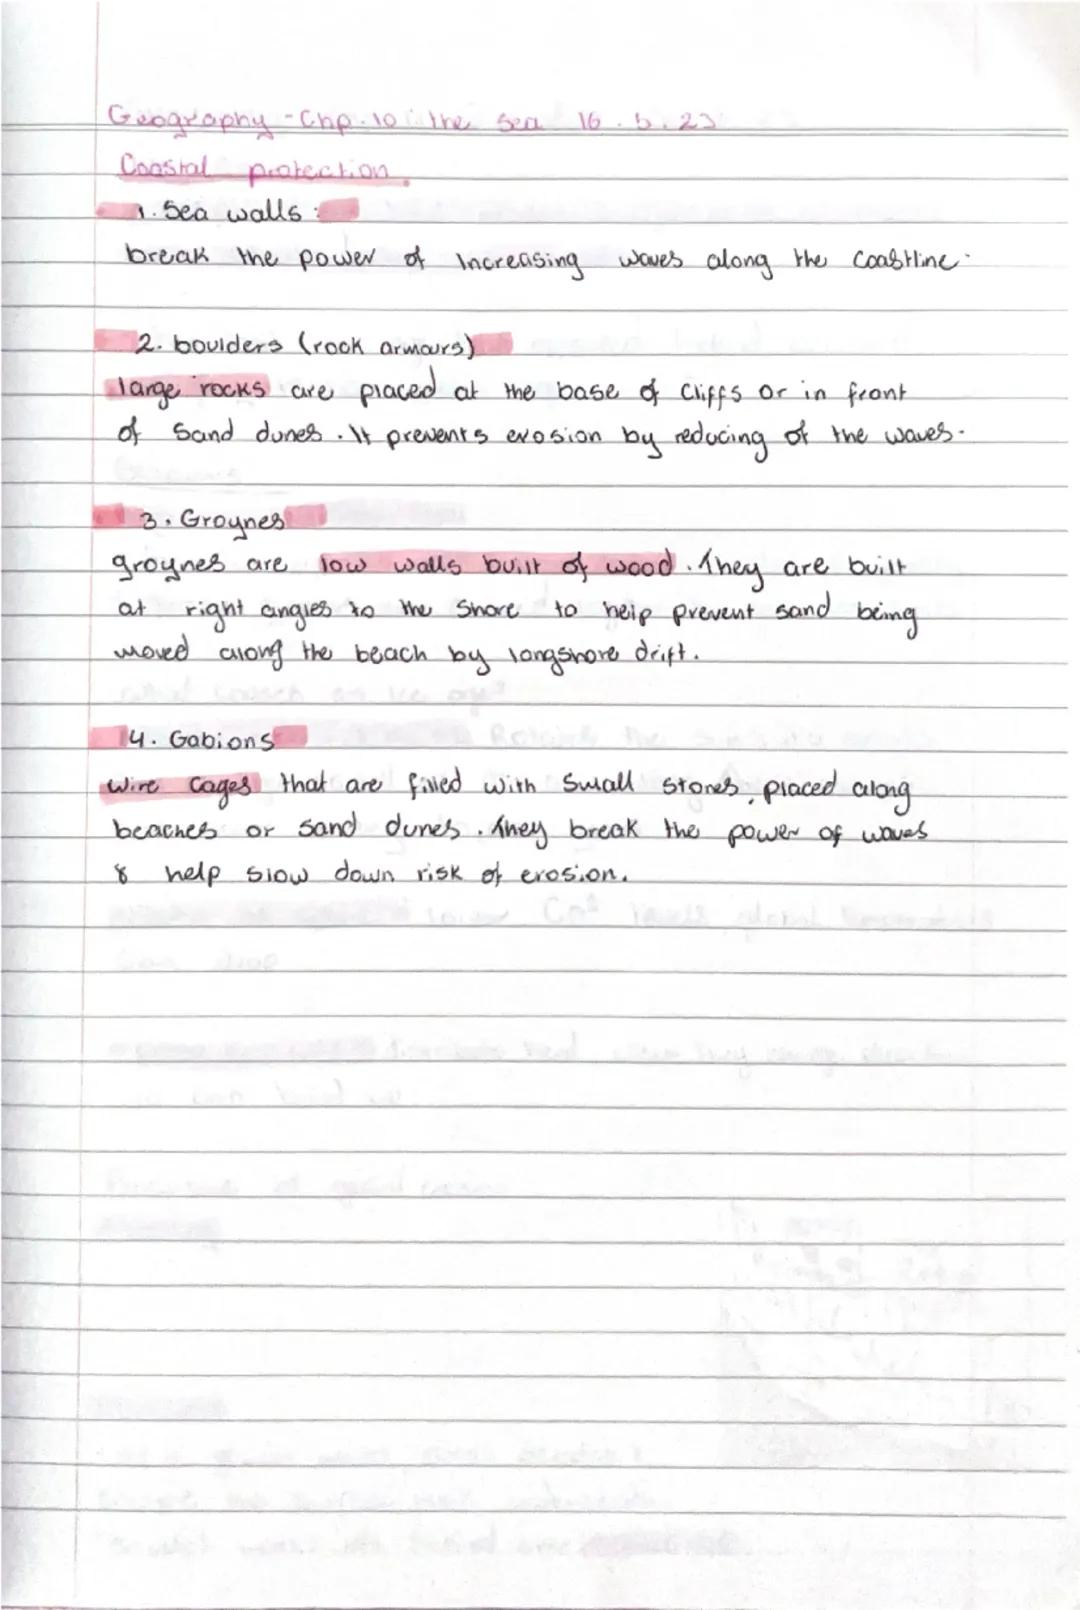 Geography - Chp. 10 : the Sea 16.5.23
Coastal protection.
1. Sea walls :
break the power of Increasing waves along the Coastline.
2. boulders (rock armours)
large rocks are placed at the base of Cliffs or in front
of Sand dunes. It prevents erosion by reducing of the waves.
3. Groynes
groynes are low walls built of wood. They are built
at right angles to the Shore to help prevent sand being
moved along the beach by longshore drift.
4. Gabions
Wire Cages that are filled with Small Stones, placed along
beaches or Sand dunes. They break the power of waves
& help slow down risk of erosion.